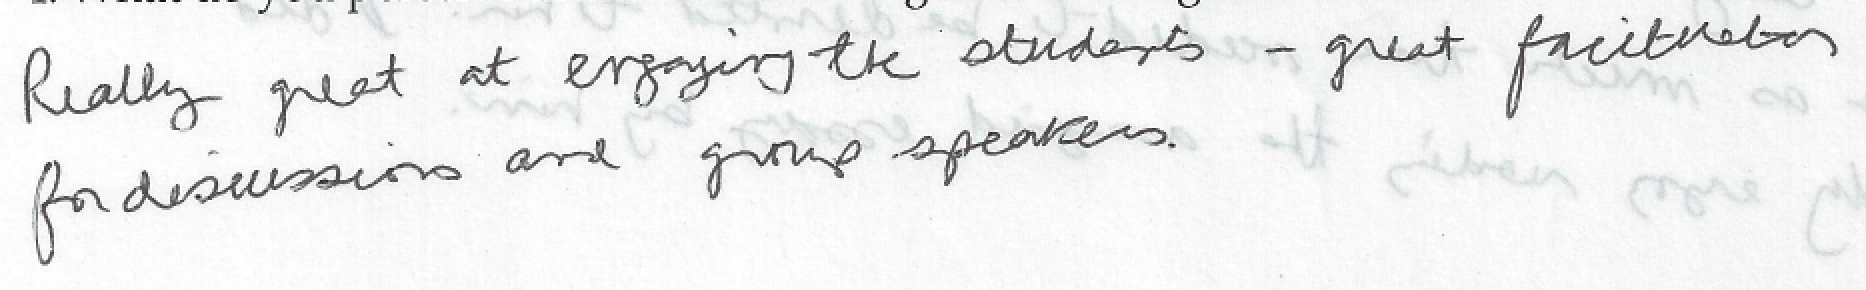 Really great at engaging the students - great facilitator
for discussions and group speakers.